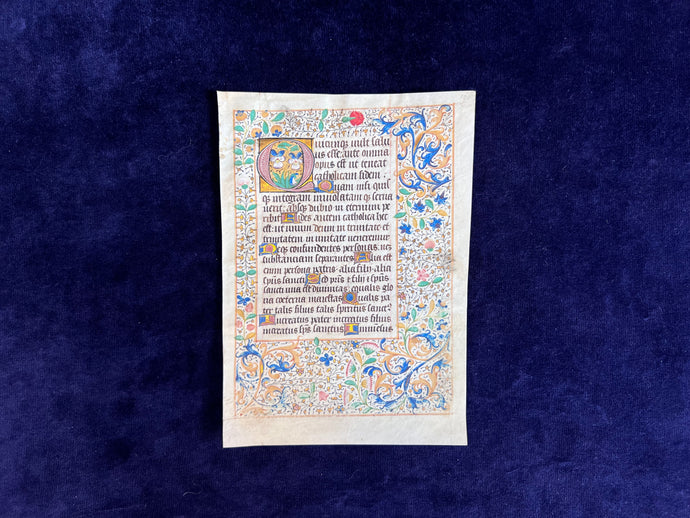 Quicunqꝫ vult salu
us esse: ante omnia
opus est ut teneat
catholicam fidem.
Quam nisi quis
qꝫ integram inuiolatam qꝫ serua
uerit: absqꝫ dubio in eternum pe
ribit Fides autem catholica hec
est: ut unum deum in trinitate et
trinitatem in unitate veneremur
Neqꝫ confundentes personas: neqꝫ
substanciam separantes Alia est
enim persona patris: alia filii: alia
spūs sancti Sed pris̄ & filii & spūs
sancti una est diuinitas: equalis glo
ria coeterna maiestas Qualis pa
ter talis filius talis spiritus sanctꝰ
Increatus pater increatus filius
increatus spūs sanctus Immensus